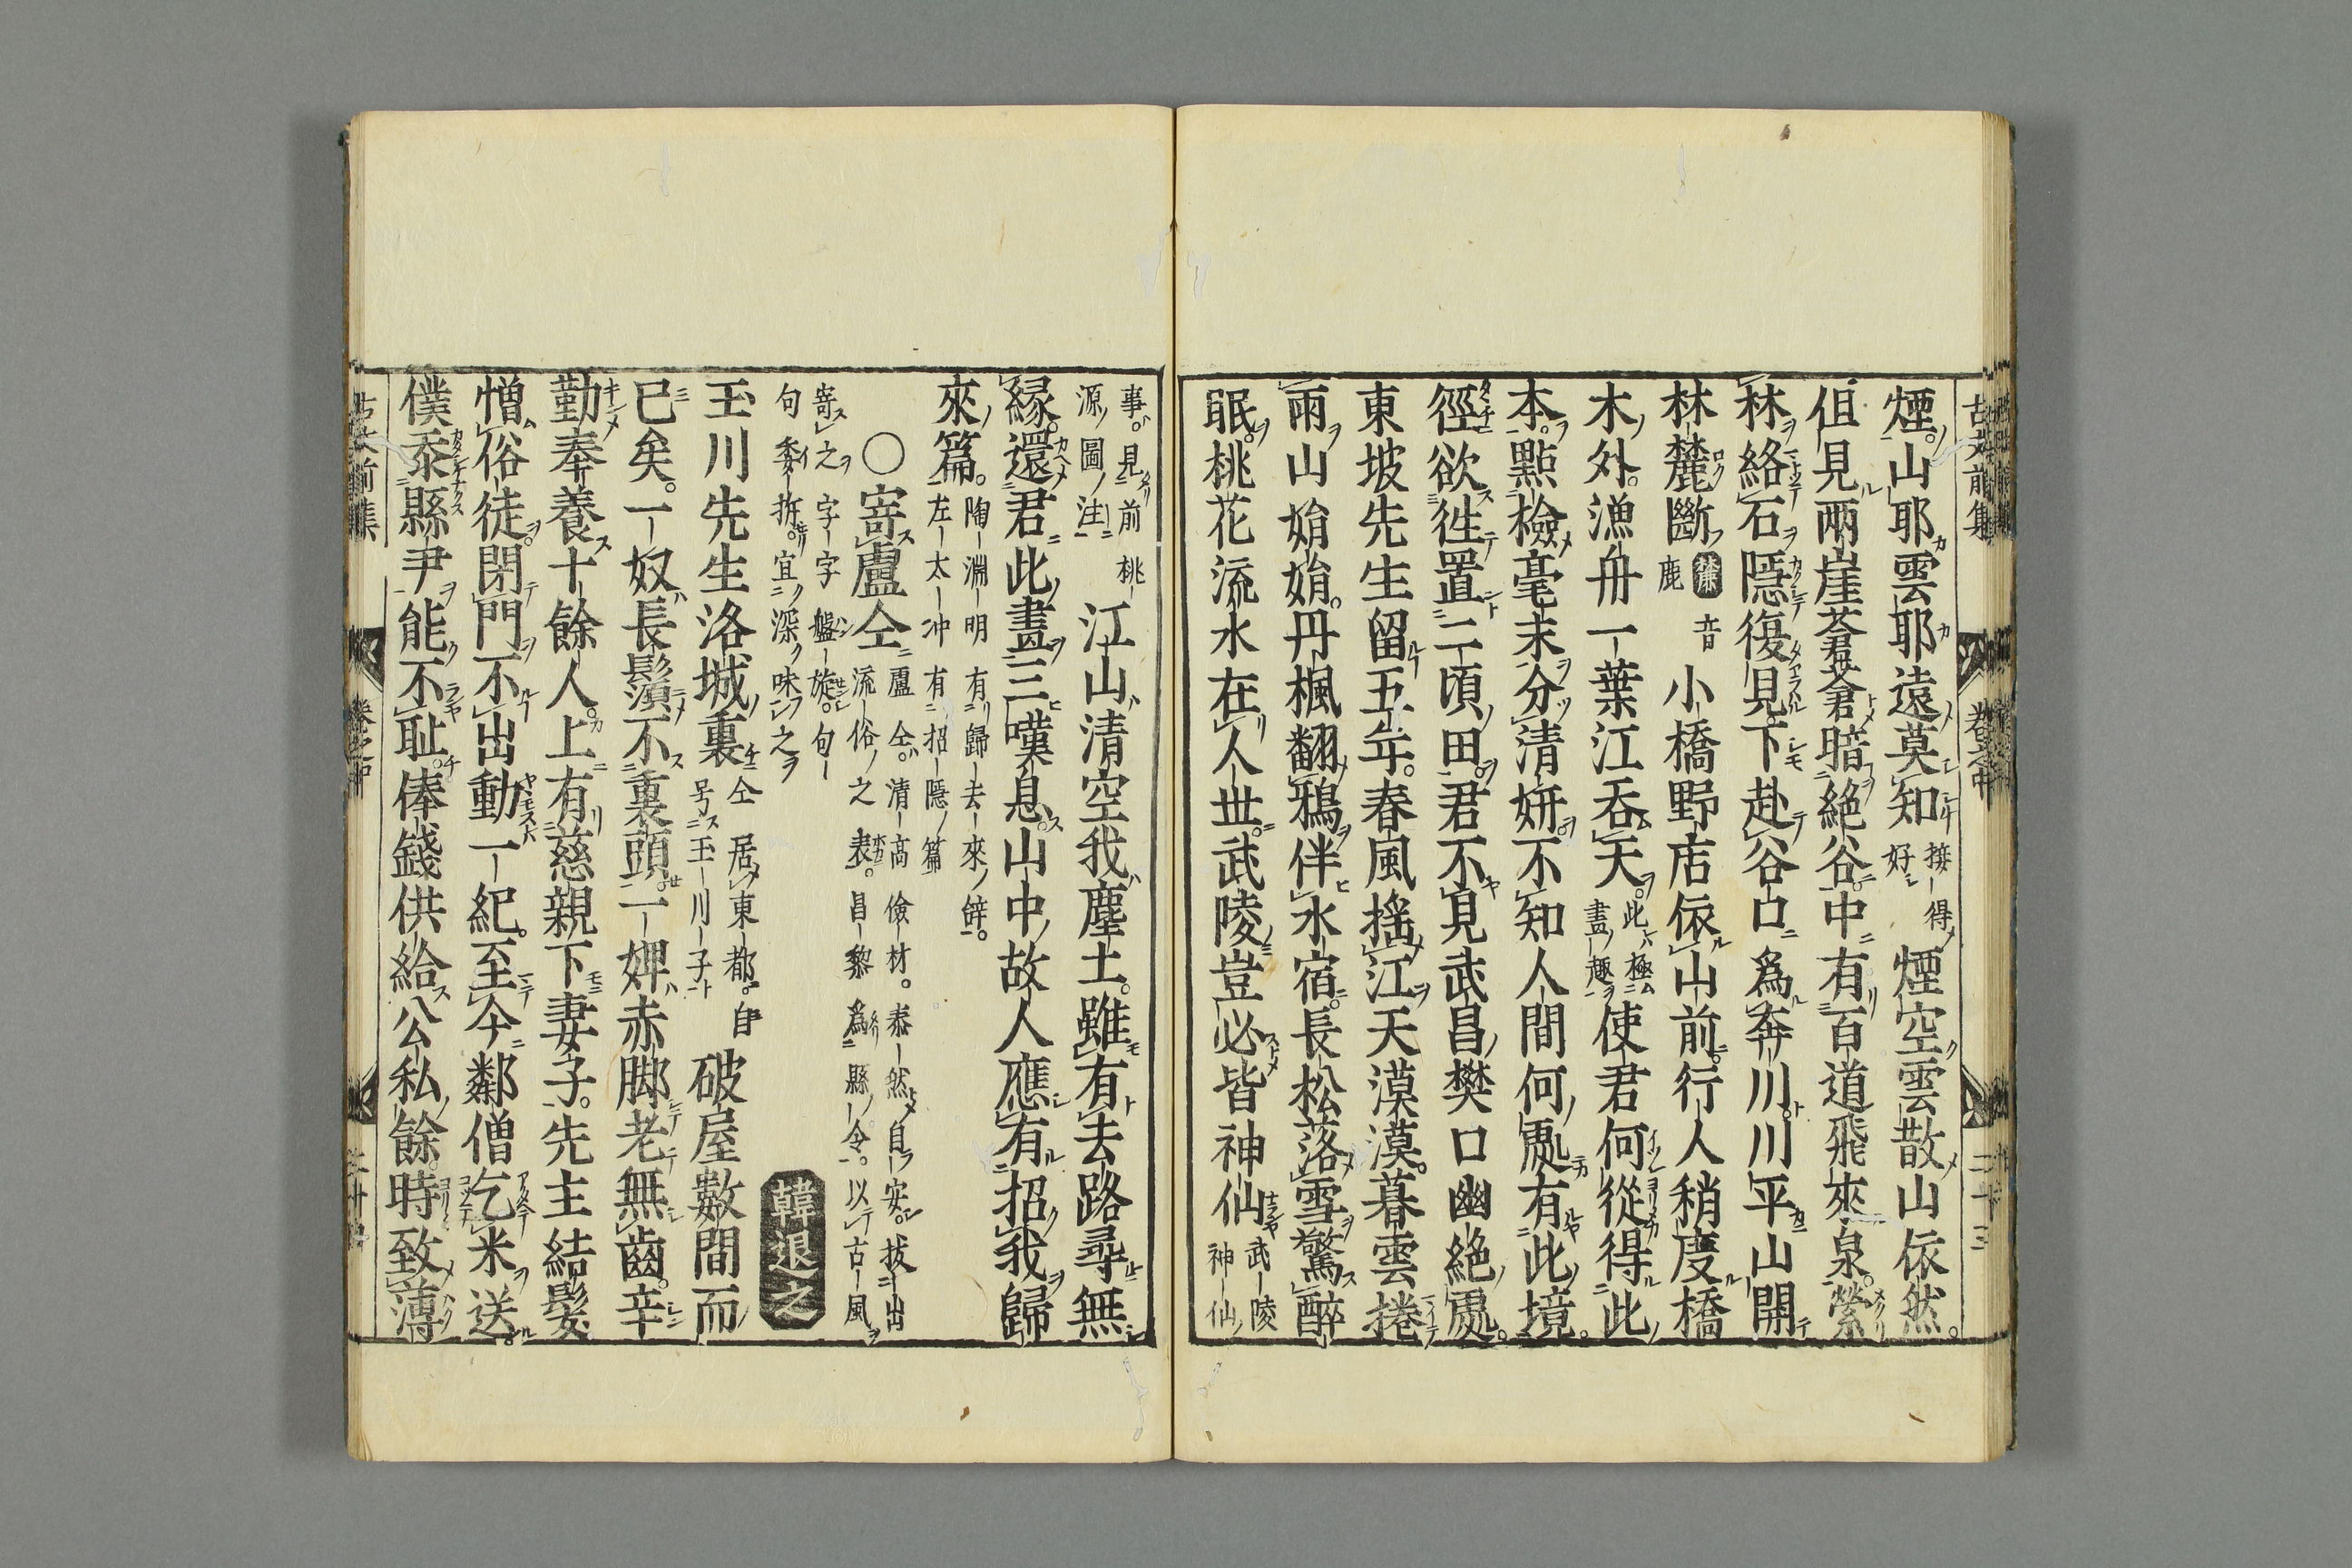 煙山耶雲耶遠莫知接得好煙空雲散山依然
但見兩崖蒼蒼暗絶谷中有百道飛來泉縈
林絡石隱復見下赴谷口爲奔川川平山開
林麓斷麓音鹿小橋野店依山前行人稍度橋
木外漁舟一葉江吞天此極畫趣使君何從得此
本點檢毫末分清妍不知人間何處有此境
徑欲徃置二頃田君不見武昌樊口幽絶處
東坡先生留五年春風搖江天漠漠暮雲捲
雨山娟娟丹楓翻鴉伴水宿長松落雪驚醉
眠桃花流水在人世武陵豈必皆神仙武陵神仙
事見前桃源圖注江山清空我塵土雖有去路尋無
緣還君此畫三嘆息山中故人應有招我歸
來篇陶淵明有歸去來辭左太冲有招隱篇
○寄盧仝盧仝清高儉材泰然自安拔出流俗之表昌黎爲縣令以古風
寄之字字盤旋句句委折宜深味之 韓退之
玉川先生洛城裏仝居東都自号玉川子破屋數間而
已矣一奴長鬚不裹頭一婢赤脚老無齒辛
勤奉養十餘人上有慈親下妻子先生結髮
憎俗徒閉門不出動一紀至今鄰僧乞米送
僕忝縣尹能不耻俸錢供給公私餘時致薄
古文前集 卷之中 二十三
古文前集 卷之中